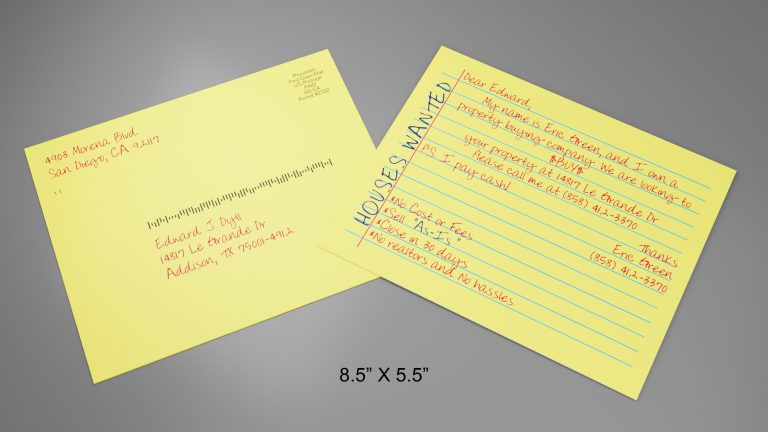 4903 Morena Blvd
San Diego, CA 92117
Presorted
First Class Mail
US Postage
PAID
SD CA
Permit #2722
Edward J. Dyll
14817 Le Grande Dr
Addison, TX 75001-4912
HOUSES WANTED
Dear Edward,
My name is Eric Green, and I own a
property buying company. We are looking to
$BUY$
your property at 14817 Le Grande Dr
Please call me at (858) 412-3370
PS. I pay cash!
Thanks
Eric Green
(858) 412-3370
*No Cost or Fees
*Sell "As-Is"
*Close in 30 days
*No realtors and No hassles
8.5” X 5.5”